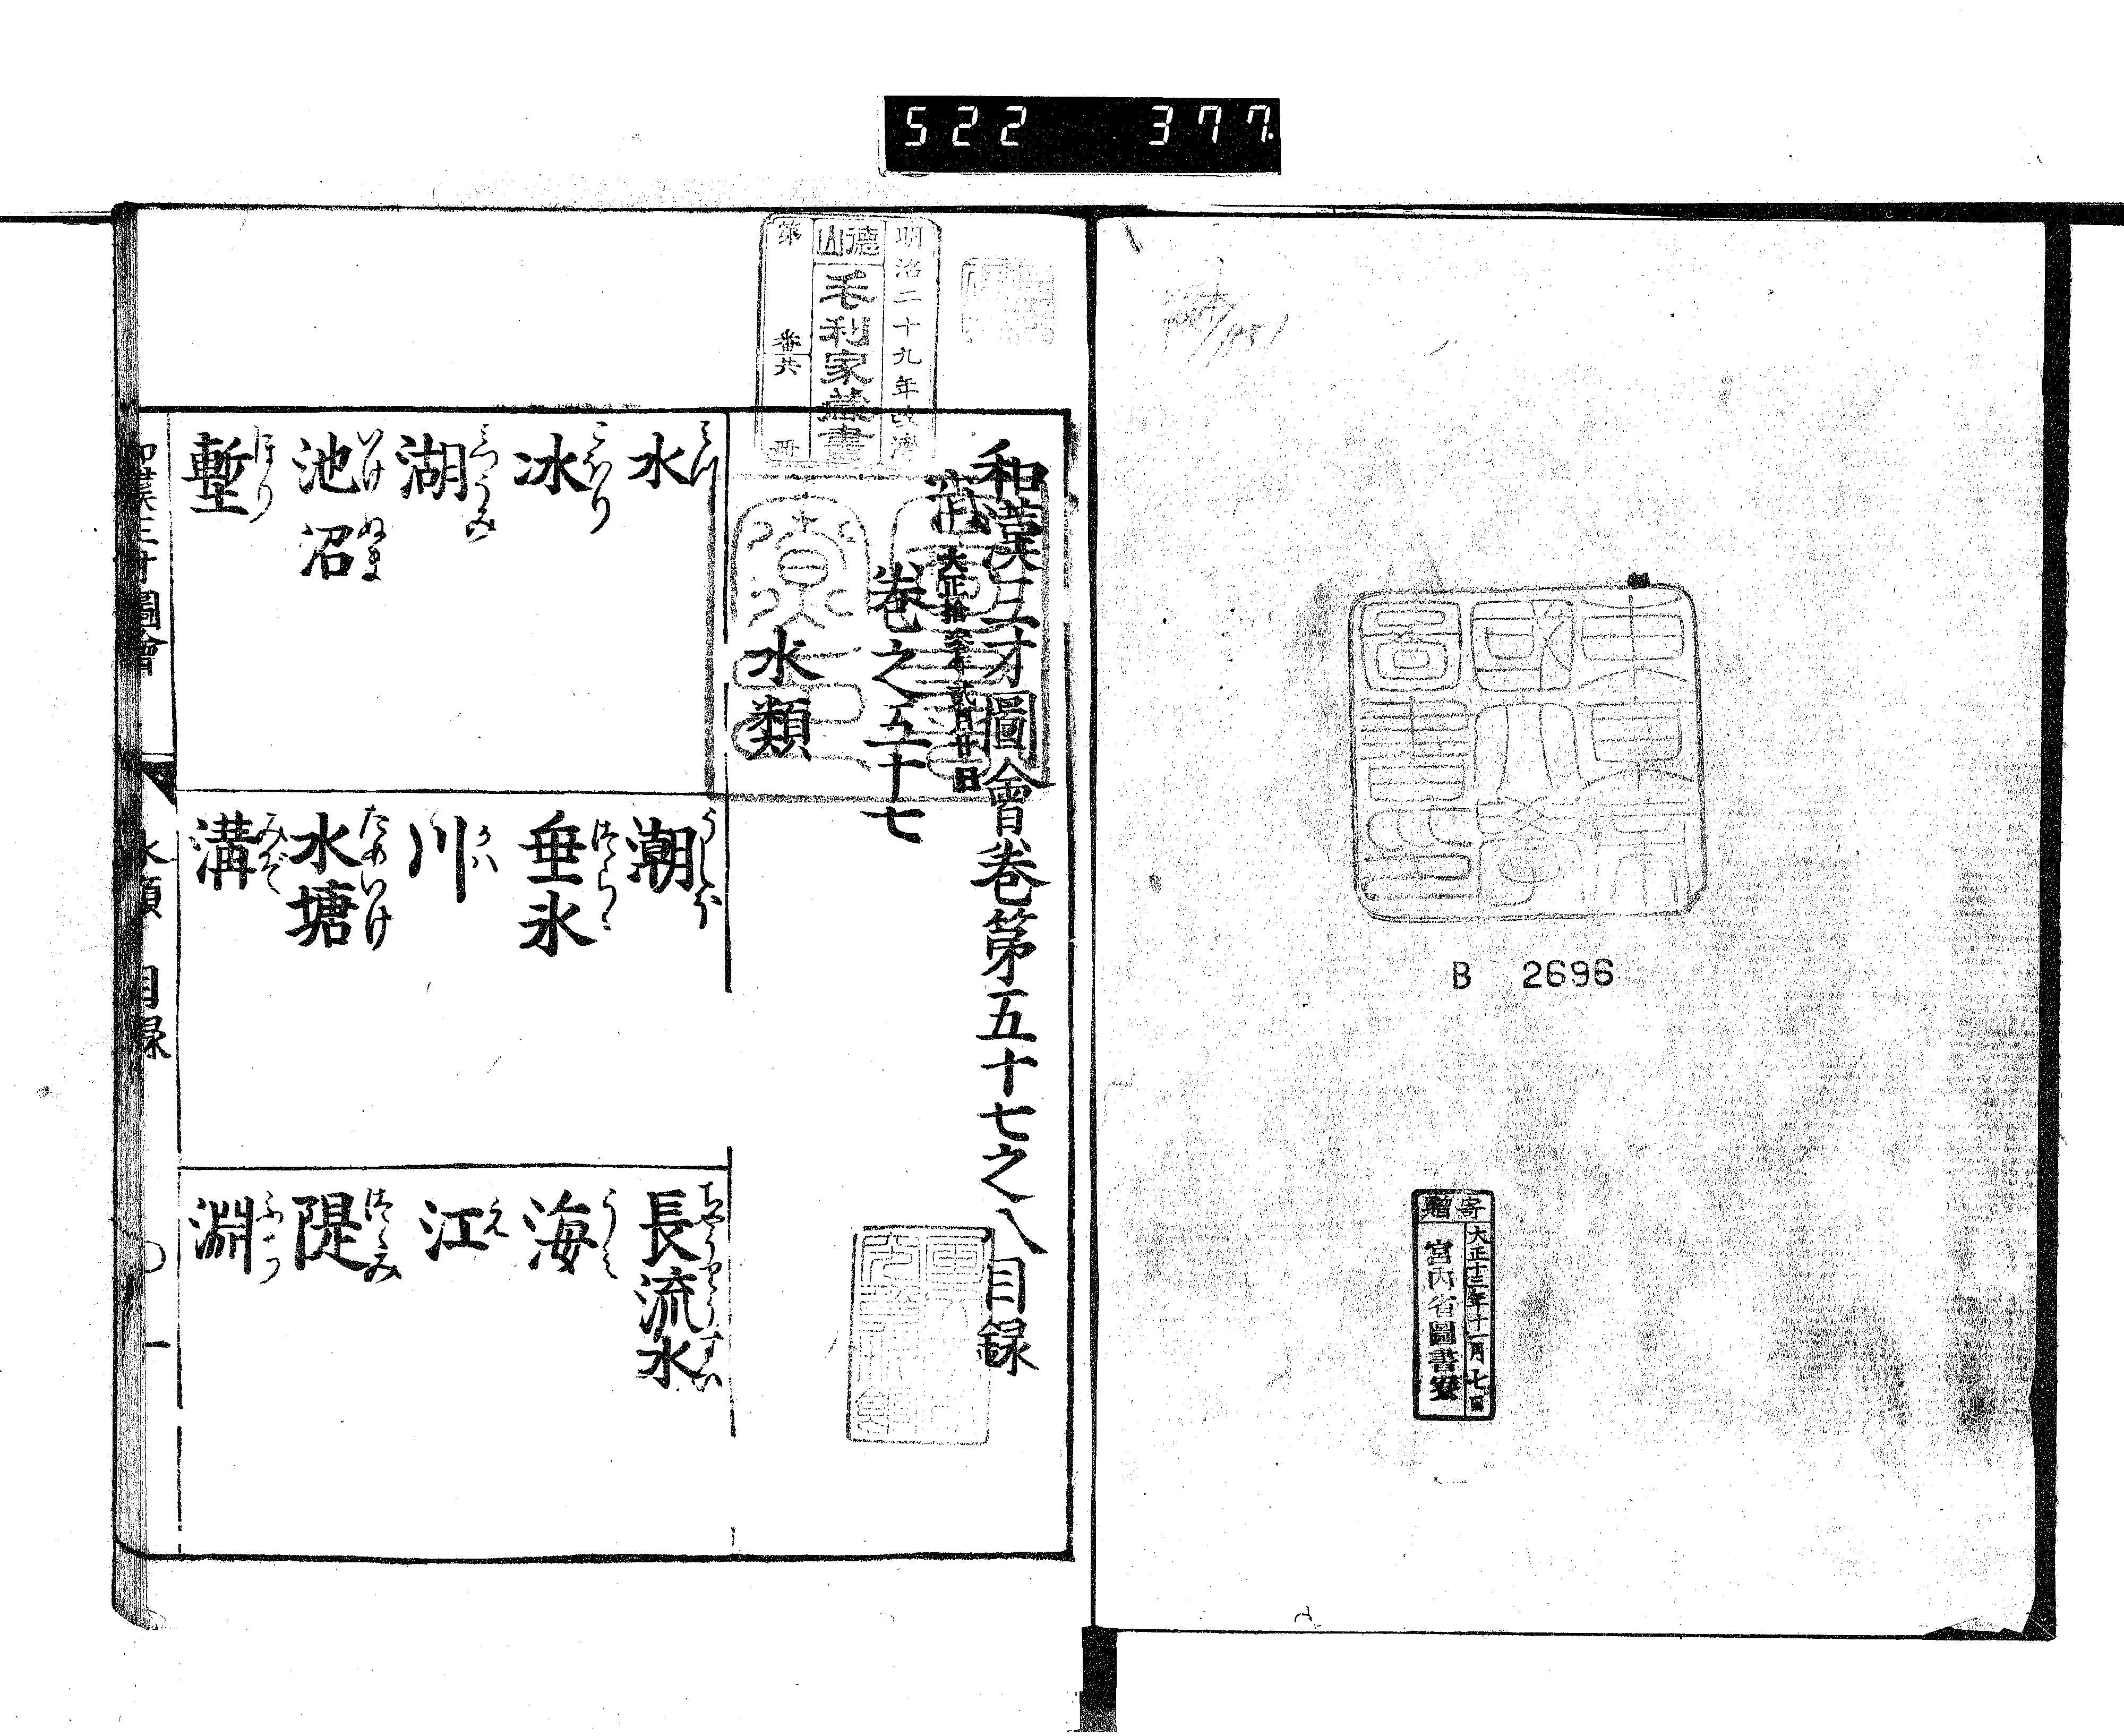 522 377
東京帝
國大學
圖書印
B 2696
寄贈
大正十三年十一月七日
宮内省圖書寮
明治二十九年改濟
德山
毛利家藏書
第 番共 冊
和漢三才圖會卷第五十七之八目録
消 大正拾參年貳月廿日
卷之五十七
水類
水 みづ
潮 うしほ
長流水 ちやうりうすい
冰 こほり
垂氷 つらゝ
海 うみ
湖 みづうみ
川 かハ
江 え
池 いけ 沼 ぬま
水塘 ためいけ
隄 つゝみ
塹 ほり
溝 みぞ
淵 ふち
和漢三才圖會 水類 目録 〇 一